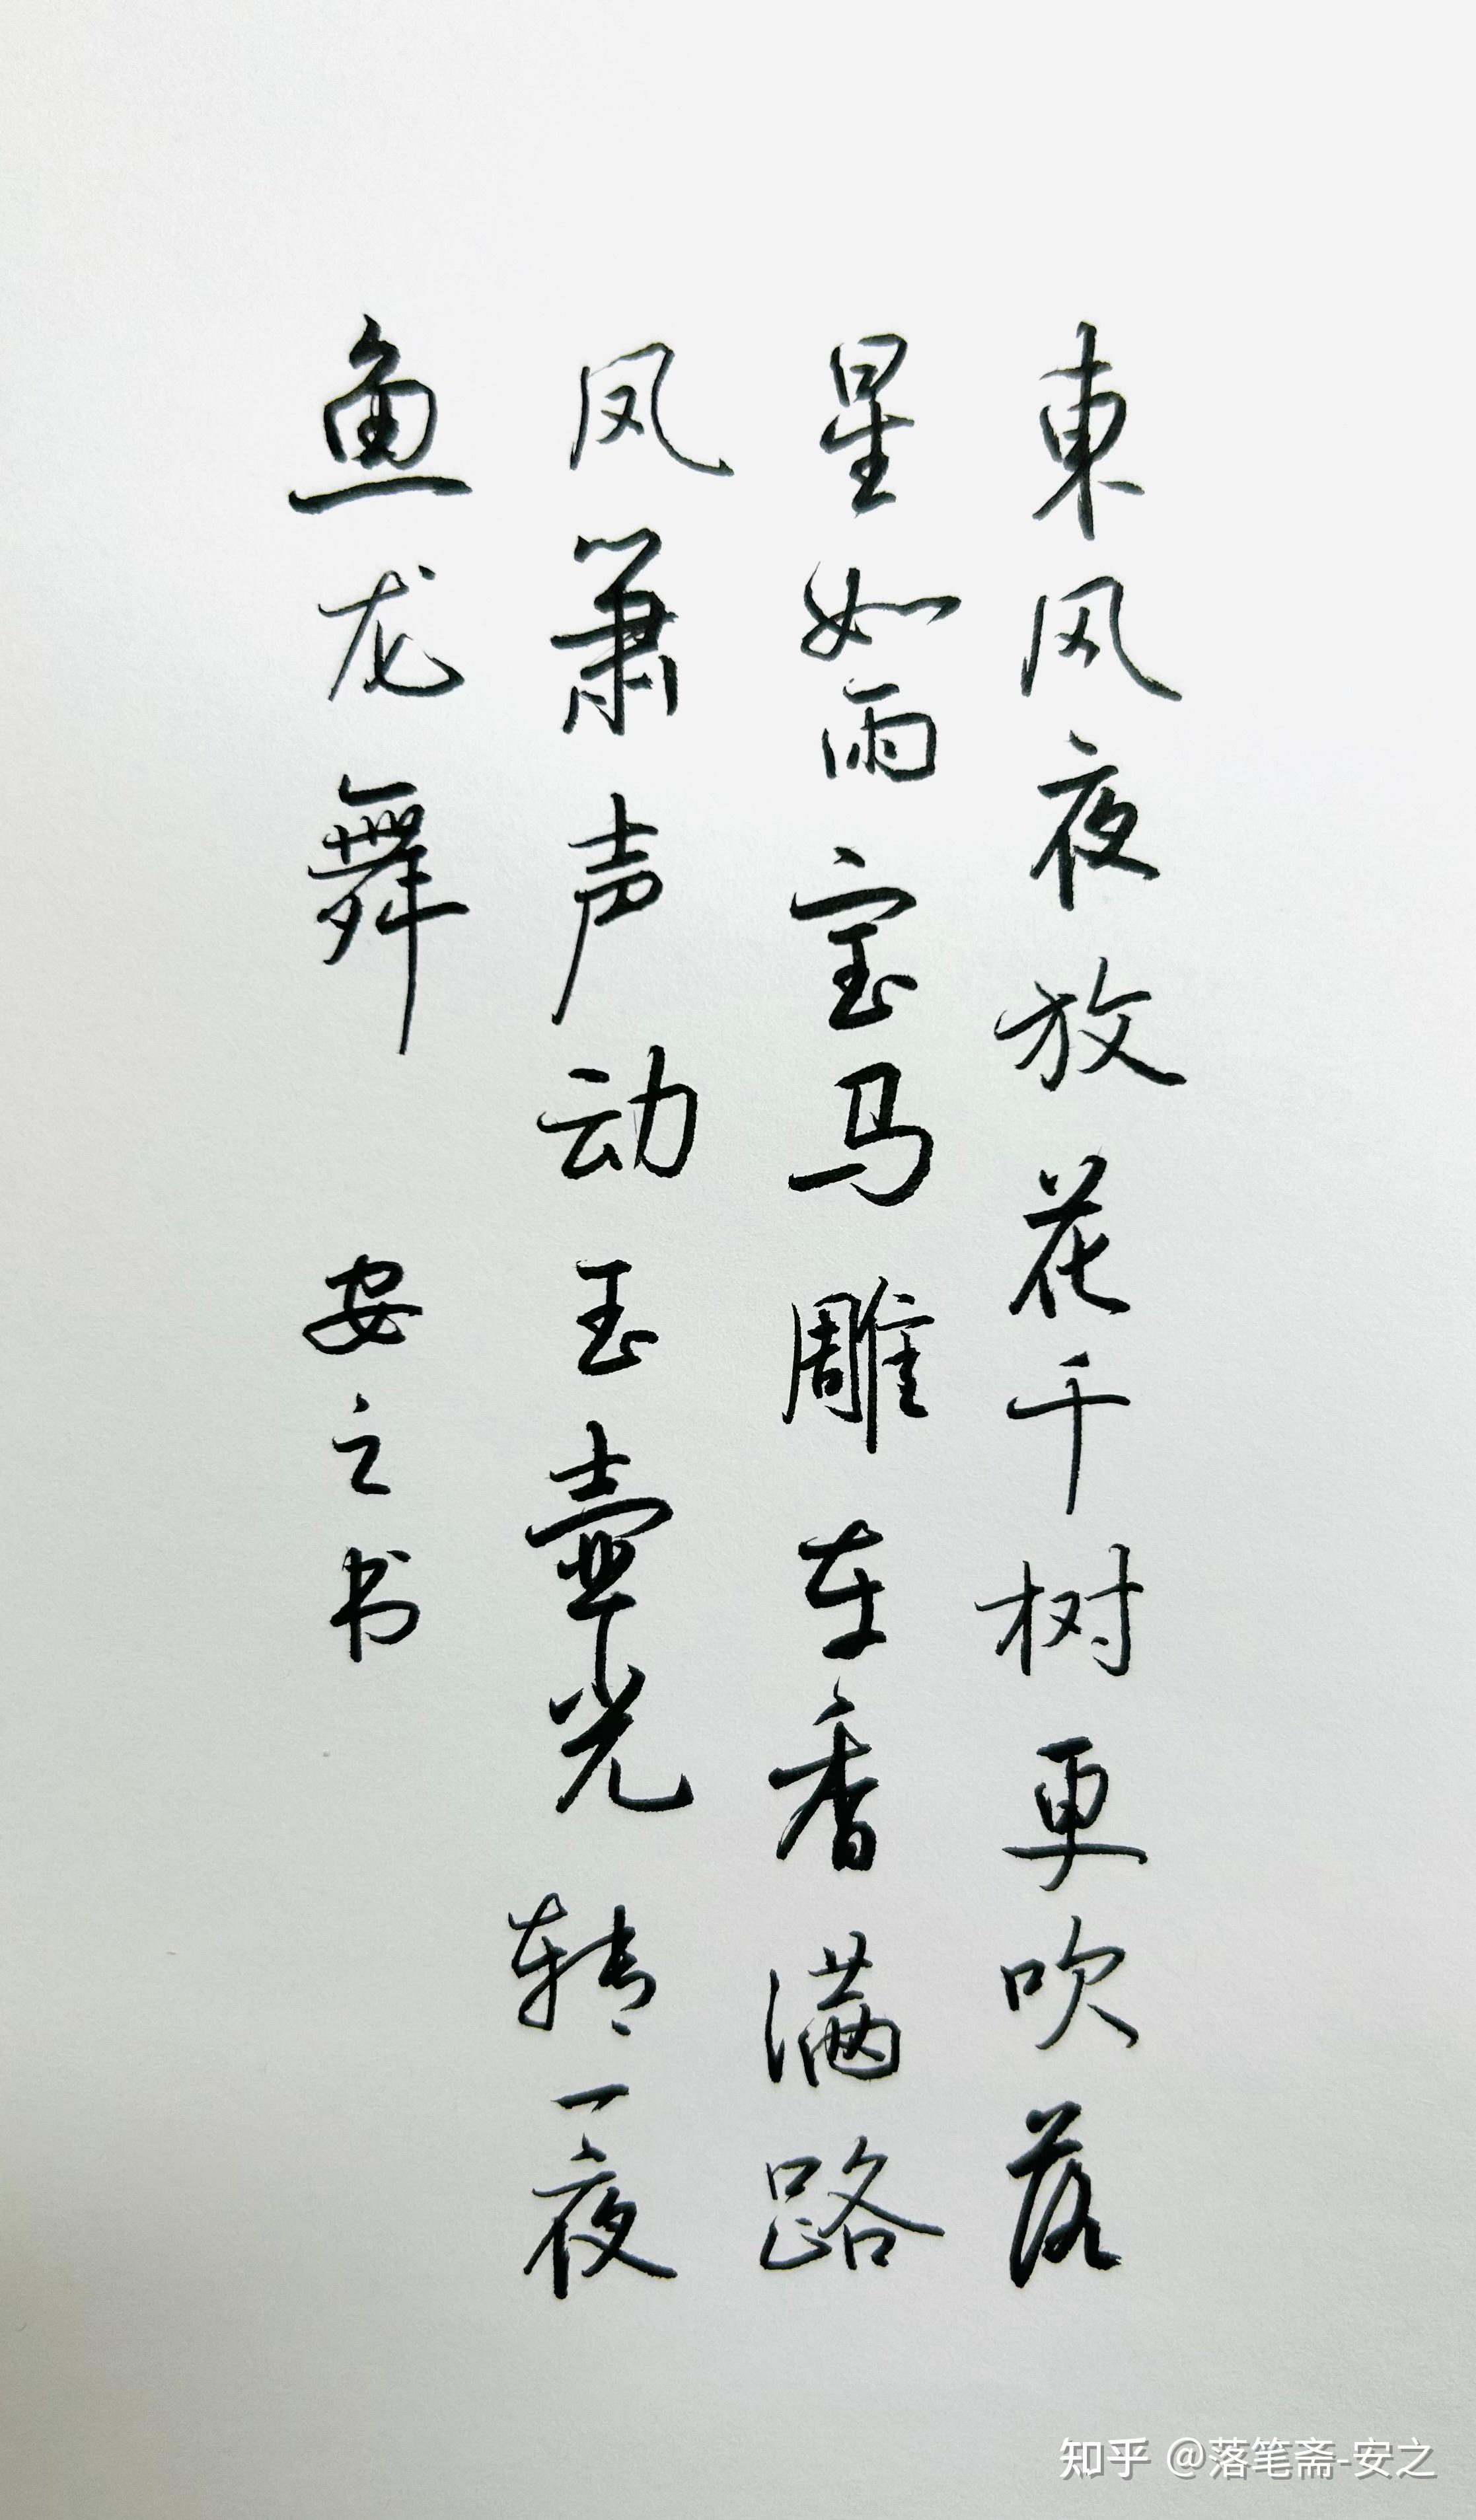 東风夜放花千树更吹落
星如雨宝马雕车香满路
凤箫声动玉壶光转一夜
鱼龙舞 安之书
知乎 @落笔斋-安之